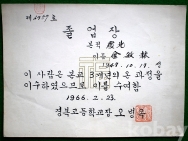 졸업장
본적 慶北
이름 金敏
1947. 10. 19. 생
이 사람은 본교 3개년의 온 과정을
이수하였으므로 이를 수여함
1966. 2. 23.
경북고등학교장